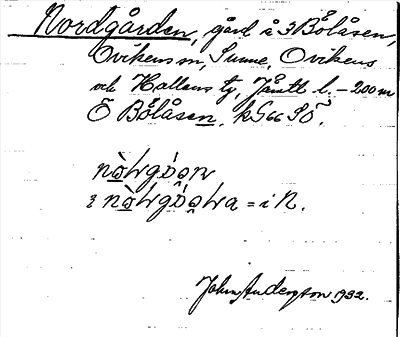 Nordgården, gård å 3 Bölåsen,
Ovikens sn, Sunne, Ovikens
och Hallens tg, Jämtl l. – 200 m
Ö Bölåsen, k G66 SÖ.
= i N.
John Anderson 1932.